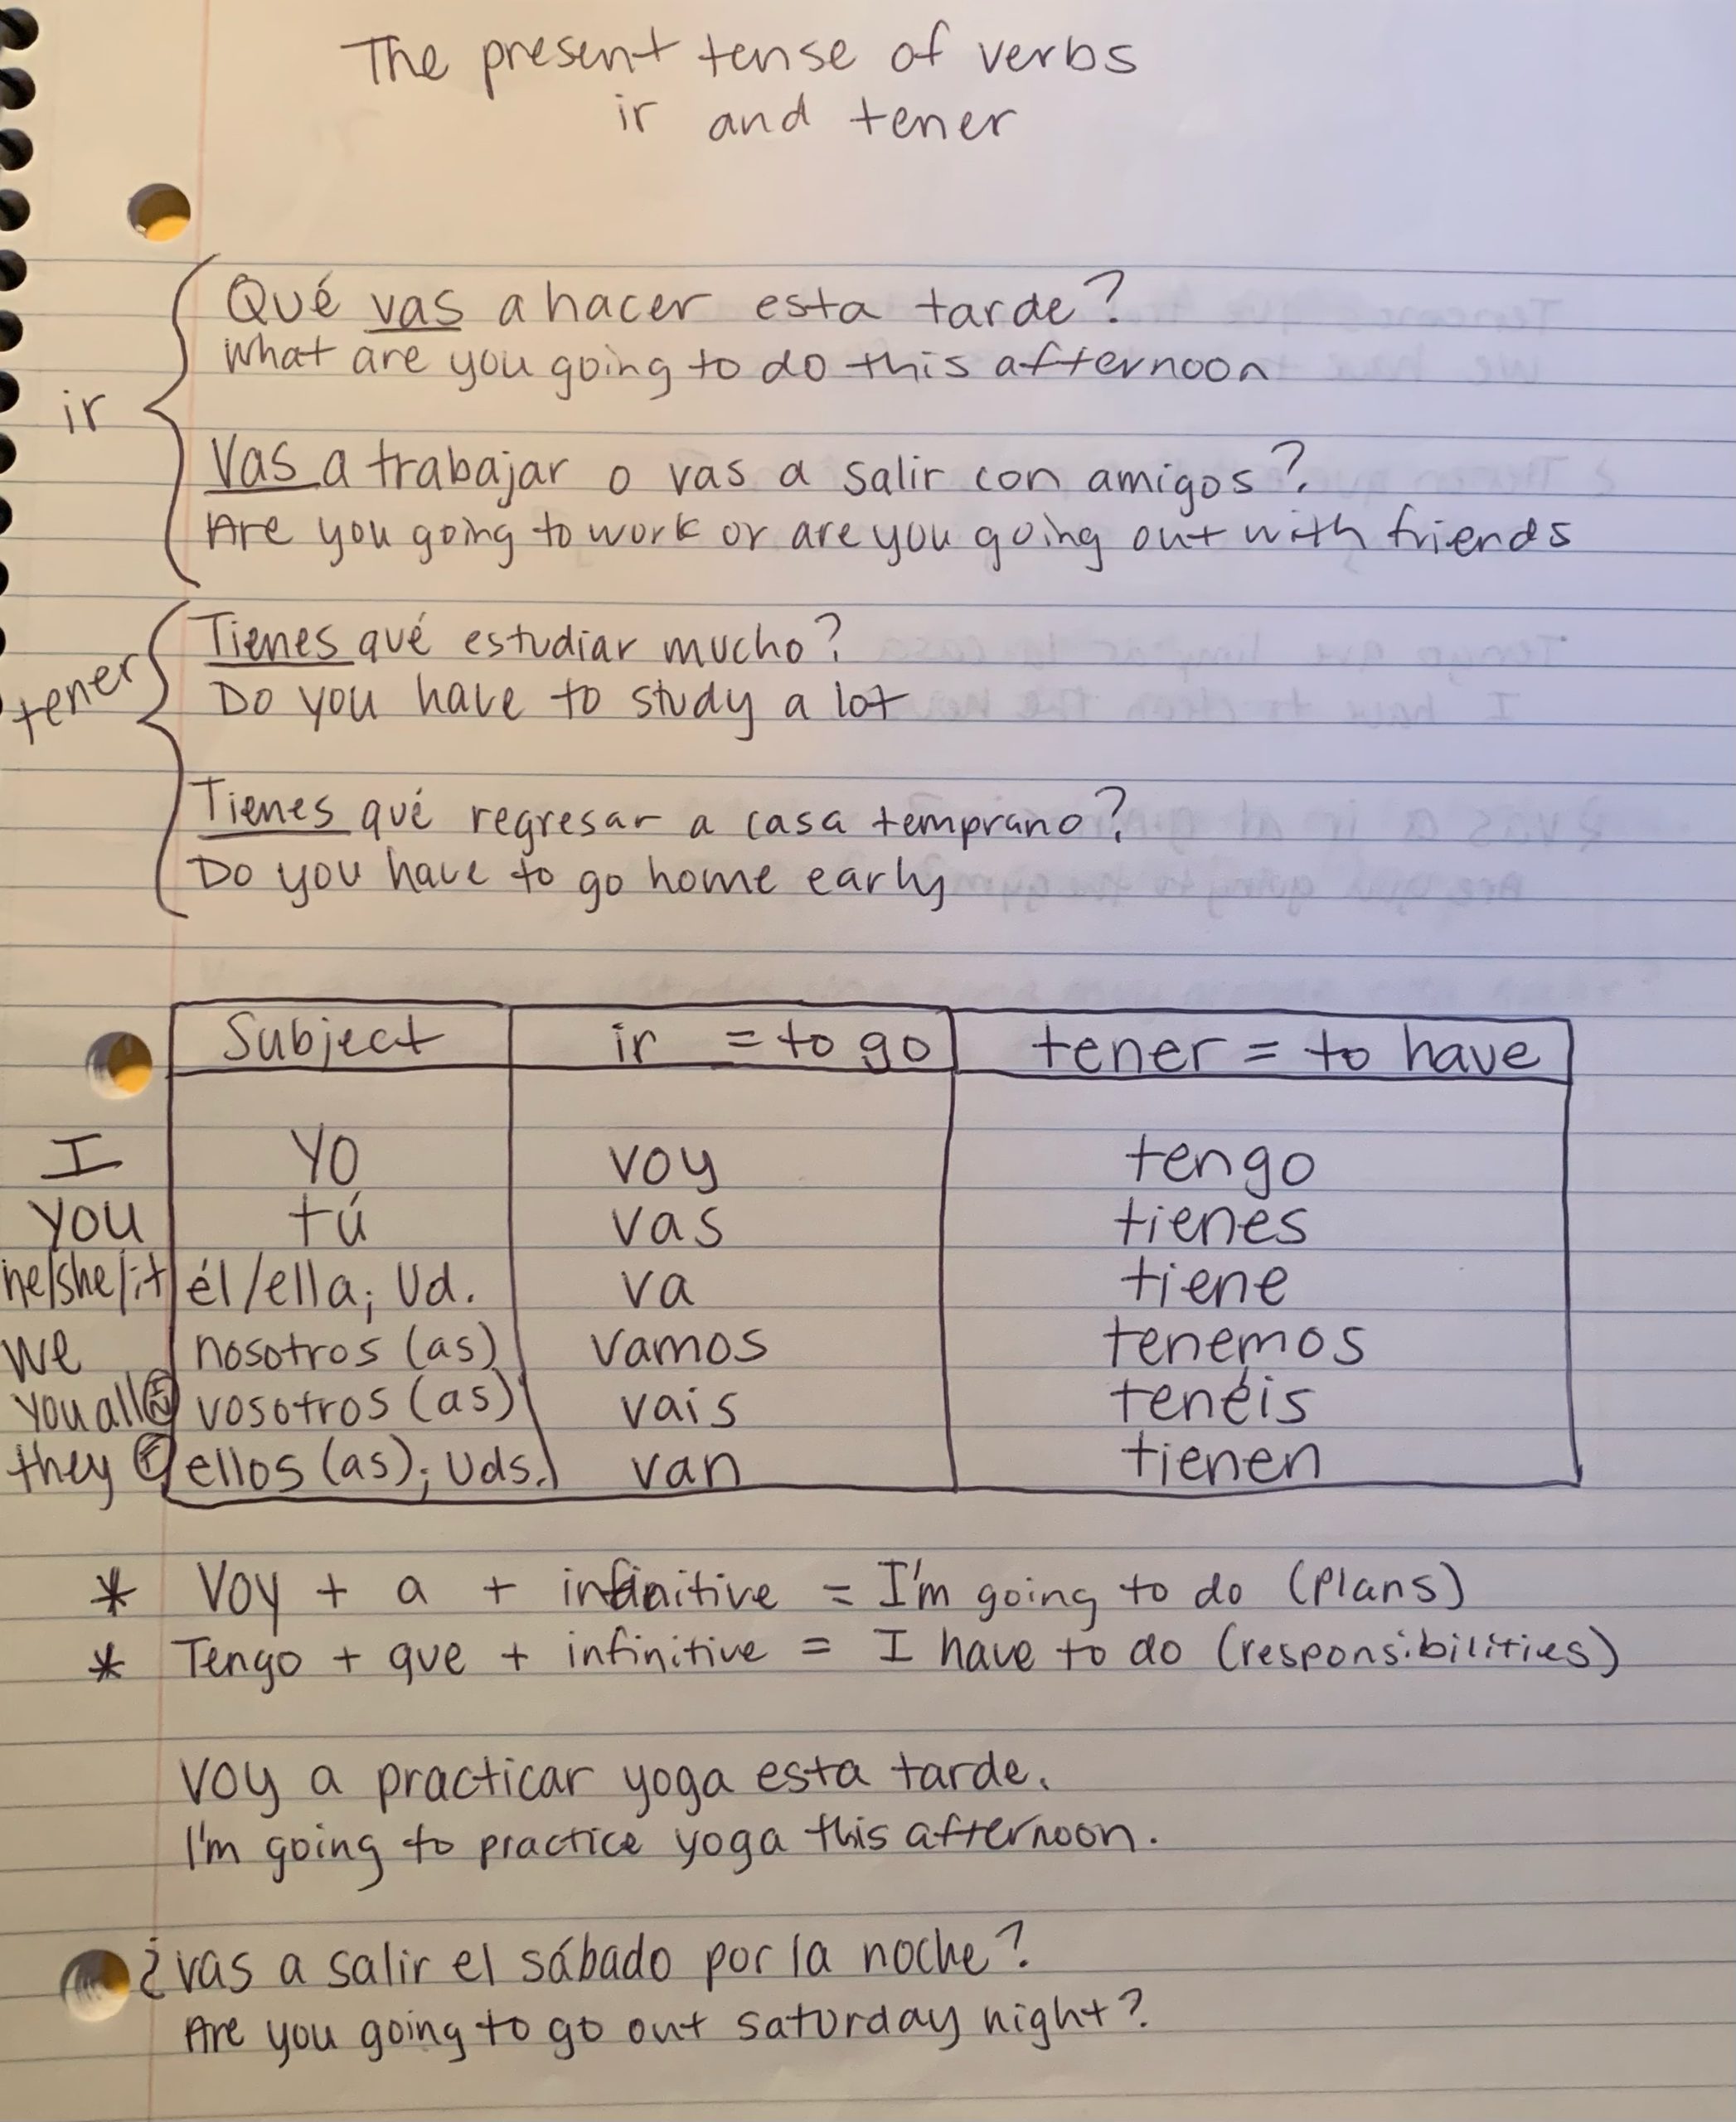 The present tense of verbs
ir and tener
ir
Qué vas a hacer esta tarde?
What are you going to do this afternoon
Vas a trabajar o vas a salir con amigos?
Are you going to work or are you going out with friends
tener
Tienes qué estudiar mucho?
Do you have to study a lot
Tienes qué regresar a casa temprano?
Do you have to go home early
Subject ir = to go tener = to have
I yo voy tengo
you tú vas tienes
he/she/it él/ella; Ud. va tiene
we nosotros (as) vamos tenemos
you all vosotros (as) vais tenéis
they ellos (as); Uds. van tienen
* Voy + a + infinitive = I'm going to do (plans)
* Tengo + que + infinitive = I have to do (responsibilities)
Voy a practicar yoga esta tarde.
I'm going to practice yoga this afternoon.
¿vas a salir el sábado por la noche?
Are you going to go out saturday night?